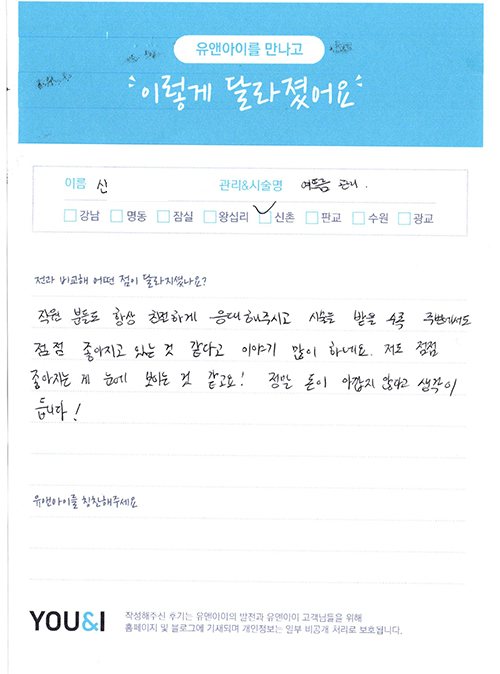 유앤아이를 만나고
이렇게 달라졌어요
이름 신 관리&시술명 여드름 관리.
강남 명동 잠실 왕십리 신촌 판교 수원 광교
전과 비교해 어떤 점이 달라지셨나요?
직원 분들도 항상 친절하게 응대해주시고 시술을 받을 수록 주변에서도
점점 좋아지고 있는 것 같다고 이야기 많이 하네요. 저도 점점
좋아지는 게 눈에 보이는 것 같고요! 정말 돈이 아깝지 않다고 생각이
듭니다!
유앤아이를 칭찬해주세요
YOU&I
작성해주신 후기는 유앤아이의 발전과 유앤아이 고객님들을 위해
홈페이지 및 블로그에 기재되며 개인정보는 일부 비공개 처리로 보호됩니다.